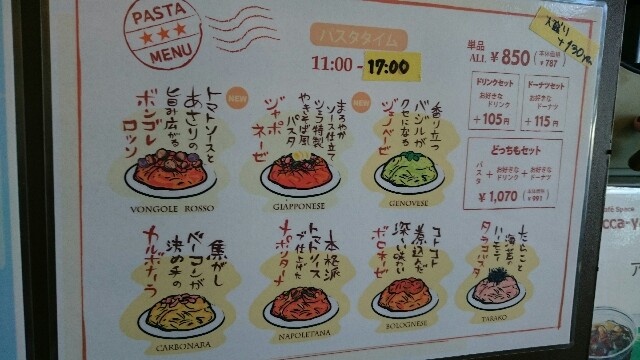 PASTA
★★★
MENU
パスタタイム
11:00 - 17:00
単品
ALL ¥850 (本体価格 ¥787)
大盛り
+130円
ドリンクセット
お好きな
ドリンク
+105円
ドーナツセット
お好きな
ドーナツ
+115円
どっちもセット
パスタ + お好きなドリンク + お好きなドーナツ
¥1,070 (本体価格 ¥991)
トマトソースと
あさりの
旨み広がる
ボンゴレ
ロッソ
VONGOLE ROSSO
NEW
まろやか
ソース仕立て
ツミラ特製
やきそば風
パスタ
ジャポ
ネーゼ
GIAPPONESE
NEW
香り立つ
バジルが
クセになる
ジェノベーゼ
GENOVESE
焦がし
ベーコンが
決め手の
カルボナーラ
CARBONARA
本格派
トマトソース
で仕上げた
ナポリターナ
NAPOLETANA
コトコト
煮込んだ
深い味わい
ボロネーゼ
BOLOGNESE
たらこと
海苔の
ハーモニー
タラコパスタ
TARAKO